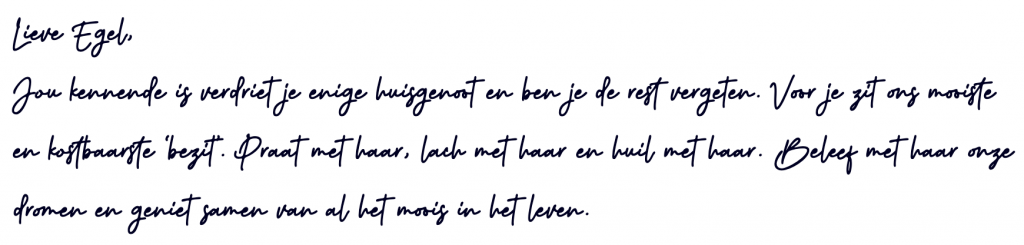 Lieve Egel,
Jou kennende is verdriet je enige huisgenoot en ben je de rest vergeten. Voor je zit ons mooiste
en kostbaarste 'bezit'. Praat met haar, lach met haar en huil met haar. Beleef met haar onze
dromen en geniet samen van al het moois in het leven.